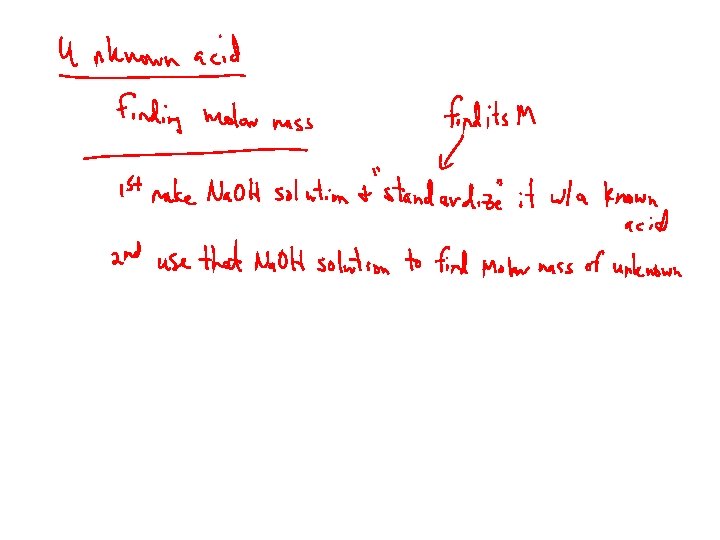 Unknown acid
Finding molar mass
find its M
1st make NaOH solution + "standardize" it w/a known
acid
2nd use that NaOH solution to find molar mass of unknown